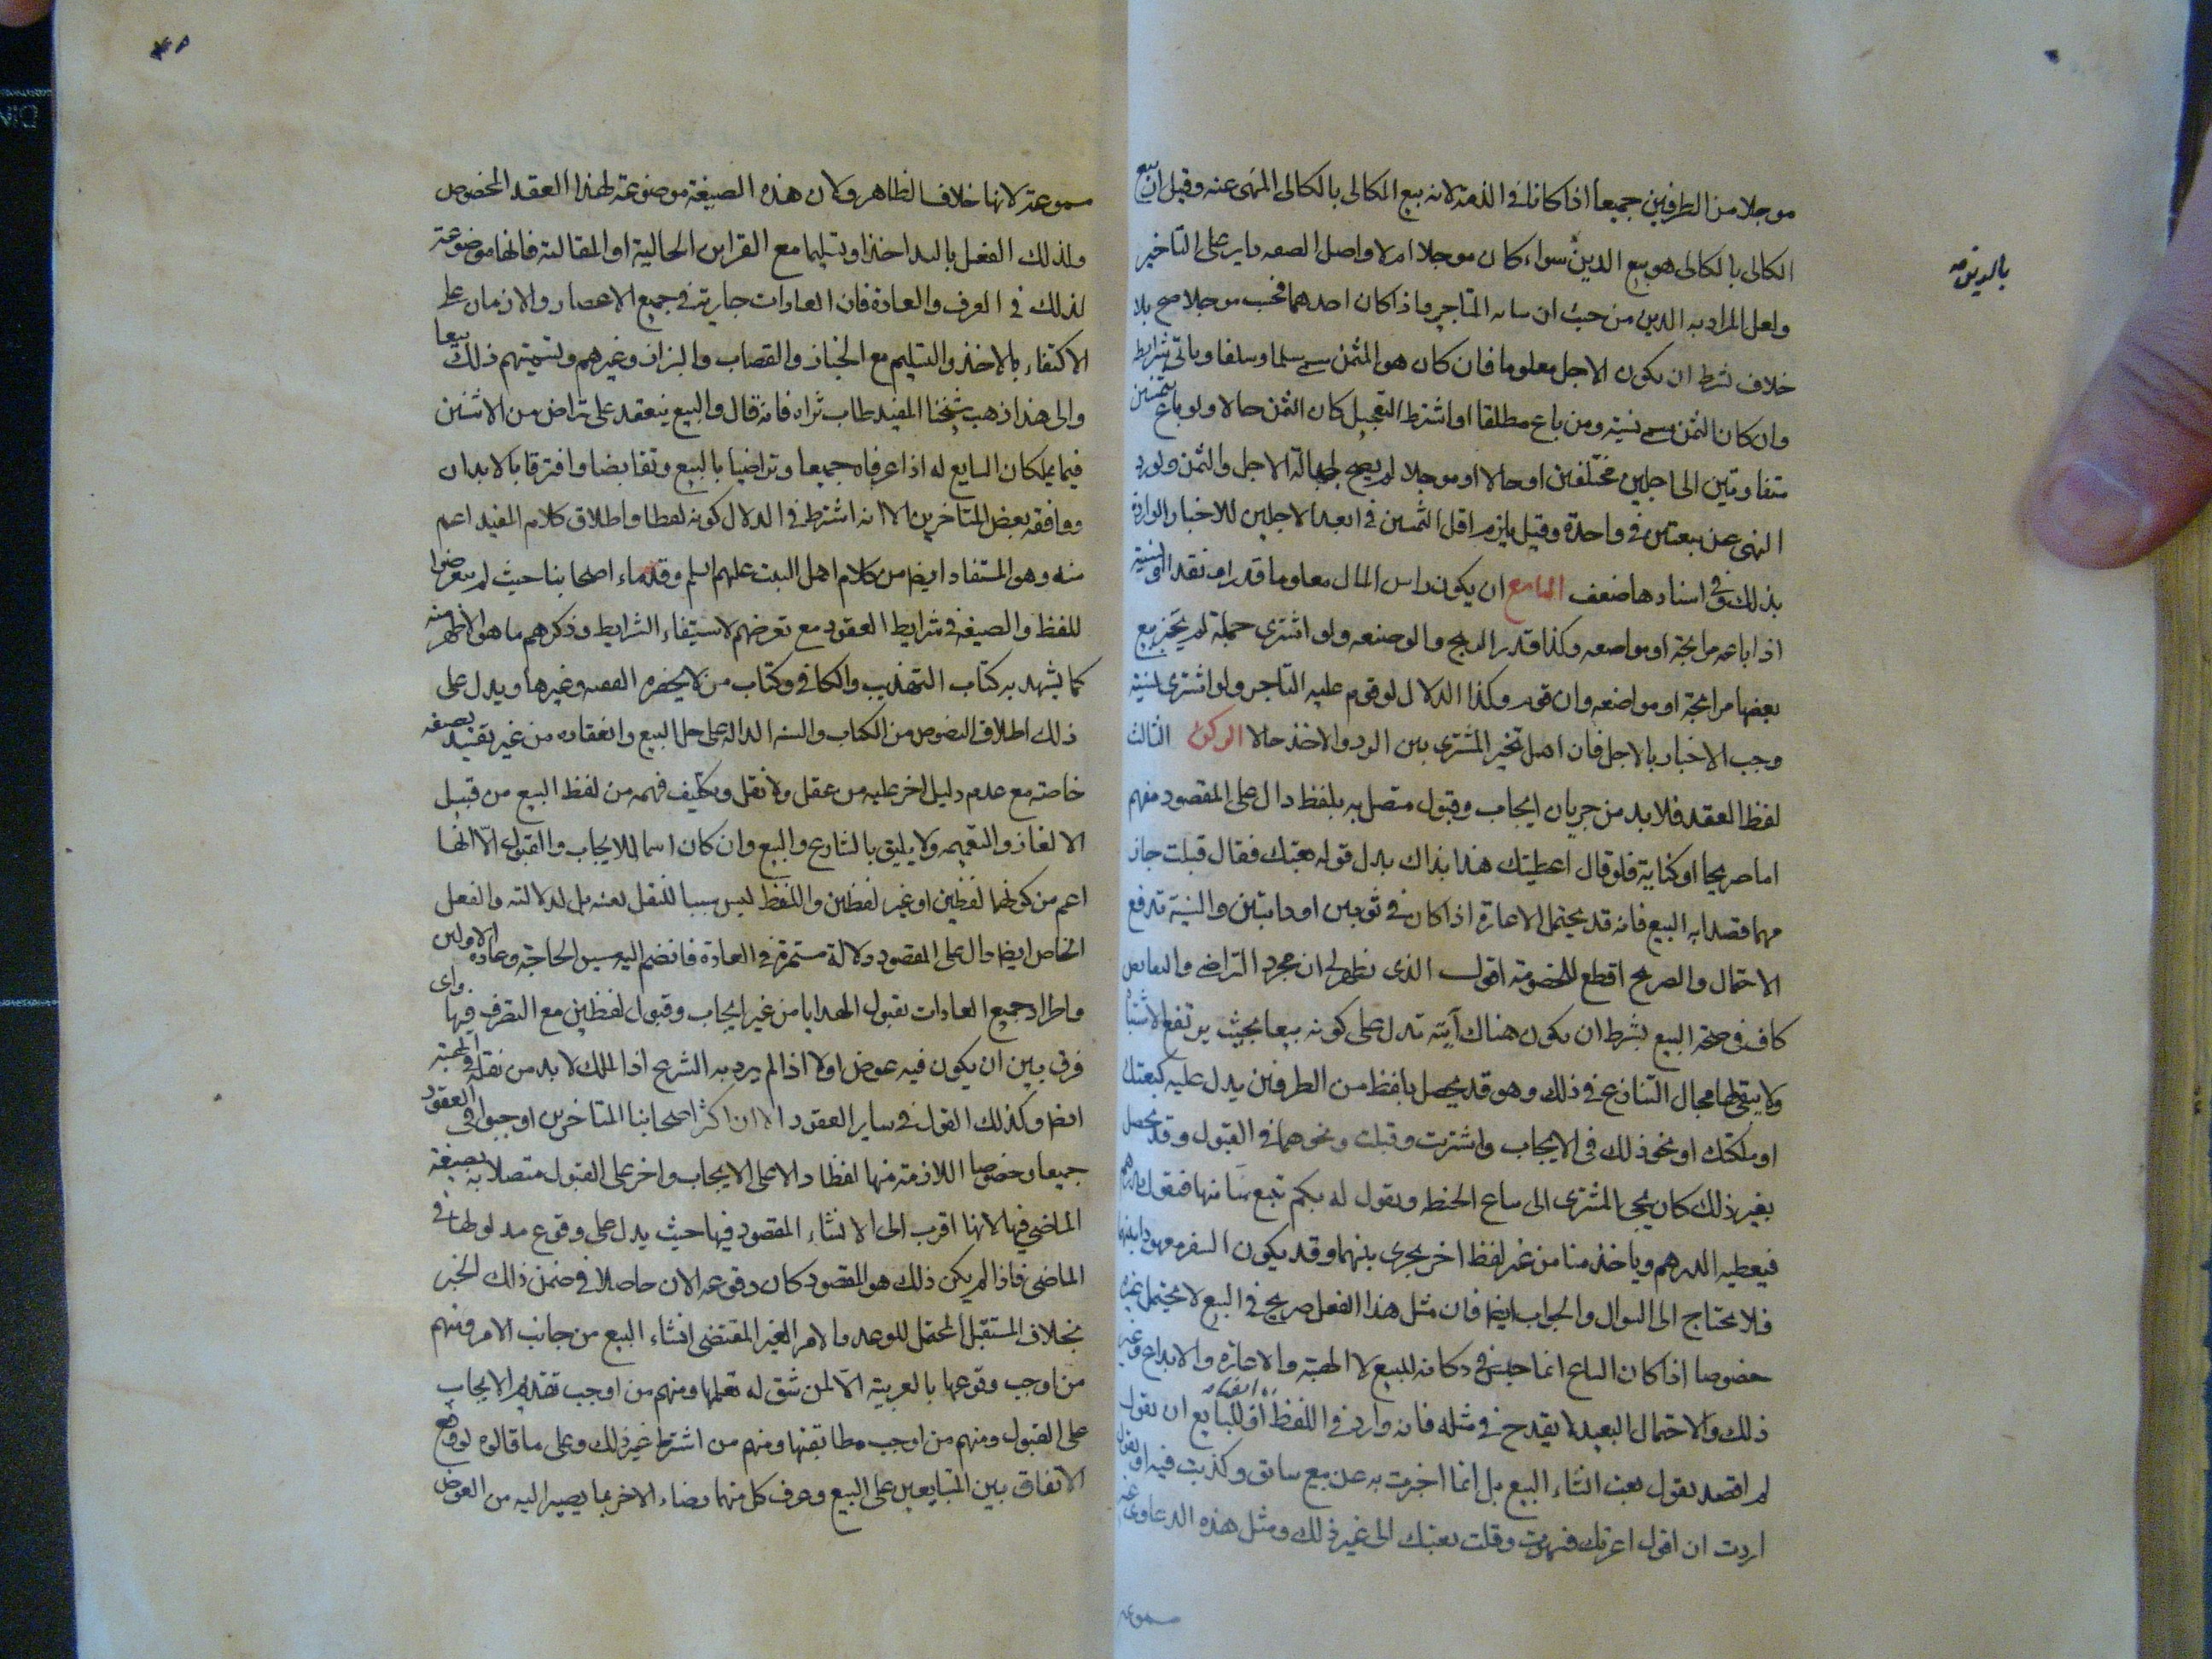 موجلا من الطرفين جميعا اذا كانا في الذمة لانه بيع الكالى بالكالى المنهى عنه وقيل ان بيع
الكالى بالكالى هو بيع الدين سواء كان موجلا ام لا واصل الصفه داير على التاخير
بالدين صه
ولعل المراد به الدين من حيث ان شانه التاخير واذا كان احدهما فحسب موجلا صح بلا
خلاف بشرط ان يكون الاجل معلوما فان كان هو المثمن سمى سلما وسلفا وياتى شرايطه
وان كان الثمن سمى نسية ومن باع مطلقا او اشترط التعجيل كان الثمن حالا ولو باع بثمنين
متفاوتين الى اجلين مختلفين او حالا او موجلا لم يصح لجهالة الاجل والثمن ولورود
النهى عن بيعتين في واحدة وقيل يلزم اقل الثمنين في ابعد الاجلين للاخبار الواردة
بذلك وفي اسنادها ضعف السابع ان يكون راس المال معلوما قدرا ونقدا ونسية
اذا باعه مرابحة او مواضعه وكذا قدر الربح والوضيعه ولو اشترى جملة لم يجز بيع
بعضها مرابحة او مواضعه وان قوم وكذا الدلال لو قوم عليه التاجر ولو اشترى نسية
وجب الاخبار بالاجل فان اهمل تخير المشترى بين الرد والاخذ حالا الركن الثالث
لفظ العقد فلا بد من جريان ايجاب وقبول متصل به بلفظ دال على المقصود مفهم
اما صريحا او كناية فلو قال اعطيتك هذا بذاك بدل قوله بعتك فقال قبلت جاز
مهما قصدا به البيع فانه قد يحتمل الاعارة اذا كان في ثوبين او دابتين والنية تدفع
الاحتمال والصريح اقطع للخصومة اقول الذى يظهر لى ان مجرد التراضى والتقابض
كاف في صحة البيع بشرط ان يكون هناك آية تدل على كونه بيعا بحيث يرتفع الاشتباه
ولا يبقى لهما مجال التنازع في ذلك وهو قد يحصل بلفظ من الطرفين يدل عليه كبعتك
او ملكتك او نحو ذلك في الايجاب واشتريت وقبلت ونحوهما في القبول وقد يحصل
بغير ذلك كان يجئ المشترى الى بياع الحنطه ويقول له بكم تبيع منا منها فيقول بدرهم
فيعطيه الدرهم وياخذ منا من غير لفظ اخر يجرى بينهما وقد يكون السعر معهودا بينهما
فلا يحتاج الى السوال والجواب ايضا فان مثل هذا الفعل صريح في البيع لا يحتمل غيره
خصوصا اذا كان البايع انما جلس في دكانه للبيع لا الهبة والاعارة والايداع وغير
ذلك والاحتمال البعيد لا يقدح في مثله فانه وارد في اللفظ اذ للبايع ان يقول
لم اقصد بقول بعت انشاء البيع بل انما اخبرت به عن بيع سابق وكذبت فيه او يقول
اردت ان اقول اعرتك فسهوت وقلت بعتك الى غير ذلك ومثل هذه الدعاوى غير
مسموعة
مسموعة لانها خلاف الظاهر ولان هذه الصيغة موضوعة لهذا العقد المخصوص
ولذلك الفعل باليد اخذا وتسليما مع القراين الحالية او المقالية فانها موضوعة
لذلك في العرف والعادة فان العادات جارية في جميع الاعصار والازمان على
الاكتفاء بالاخذ والتسليم مع الخباز والقصاب والبزاز وغيرهم وتسميتهم ذلك بيعا
والى هذا ذهب شيخنا المفيد طاب ثراه فانه قال والبيع ينعقد على تراض من الاثنين
فيما يملكان التبايع له اذا عرفاه جميعا وتراضيا بالبيع وتقابضا وافترقا بالابدان
ووافقه بعض المتاخرين الا انه اشترط في الدلال كونه لفظا واطلاق كلام المفيد اعم
منه وهو المستفاد ايضا من كلام اهل البيت عليهم السلم وقدماء اصحابنا حيث لم يتعرضوا
للفظ والصيغه في شرايط العقود مع تعرضهم لاستيفاء الشرايط وذكرهم ما هو الاظهر منه
كما يشهد به كتاب التهذيب والكافي وكتاب من لا يحضره الفقيه وغيرها ويدل على
ذلك اطلاق النصوص من الكتاب والسنه الداله على حل البيع وانعقاده من غير تقييد بصيغه
خاصة مع عدم دليل اخر عليه من عقل ولا نقل وتكليف فهمه من لفظ البيع من قبيل
الالغاز والتعميه ولا يليق بالشارع والبيع وان كان اسما للايجاب والقبول الا انها
اعم من كونهما لفظين او غير لفظين واللفظ ليس سببا للنقل لعينه بل لدلالته والفعل
الخاص ايضا دال على المقصود دلالة مستمرة في العادة فانضم اليه مسيس الحاجة وعادة الاولين
واطراد جميع العادات بقبول الهدايا من غير ايجاب وقبول لفظيين مع التصرف فيها واى
فرق بين ان يكون فيه عوض اولا اذا لم يرد به الشرع اذ الملك لا بد من نقله في الهبة
ايضا وكذلك القول في ساير العقود الا ان اكثر اصحابنا المتاخرين اوجبوا في العقود
جميعا وخصوصا اللازمة منها لفظا دالا على الايجاب واخر على القبول متصلا به بصيغة
الماضى فيها لانها اقرب الى الانشاء المقصود فيها حيث يدل على وقوع مدلولها في
الماضى فاذا لم يكن ذلك هو المقصود كان وقوعه الان حاصلا في ضمن ذلك الخبر
بخلاف المستقبل المحتمل للوعد والامر الغير المقتضى انشاء البيع من جانب الامر ومنهم
من اوجب وقوعها بالعربية الا لمن شق له تعلمها ومنهم من اوجب تقديم الايجاب
على القبول ومنهم من اوجب مطابقتها ومنهم من اشترط غير ذلك وعلى ما قالوه لو وقع
الاتفاق بين المتبايعين على البيع وعرف كل منهما رضاء الاخر بما يصير اليه من العوض